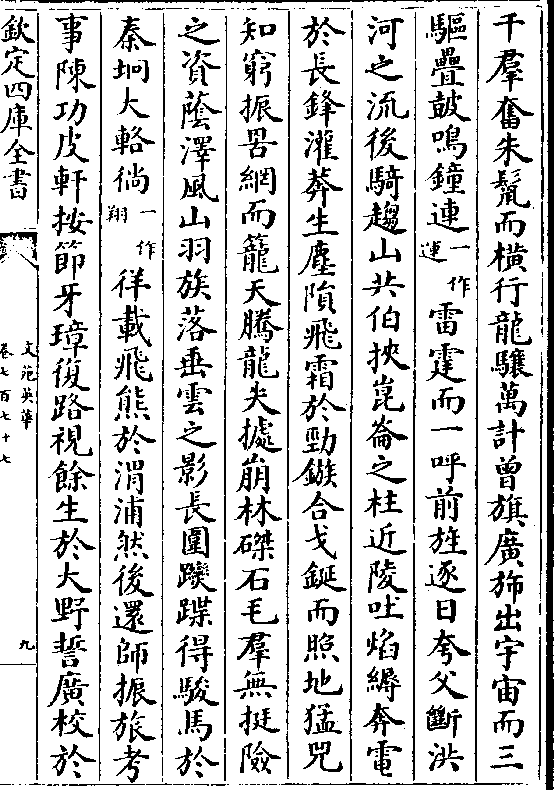 千羣奮朱鬣而橫行龍驤萬計曾旗廣斾出宇宙而三
驅疊鼓鳴鐘連一作運雷霆而一呼前旌逐日夸父斷洪
河之流後騎趨山共伯挾崑崙之柱近陵吐焰縟奔電
於長鋒灌莽生塵隕飛霜於勁鏃合戈鋋而照地猛兕
知窮振罟網而籠天騰龍失據崩林磔石毛羣無挺險
之資蔭澤風山羽族落垂雲之影長圍躞蹀得駿馬於
秦坰大輅徜一作翔徉載飛熊於渭浦然後還師振旅考
事陳功皮軒按節牙璋復路視餘生於大野誓廣校於
欽定四庫全書
文苑英華
卷七百七十七
九